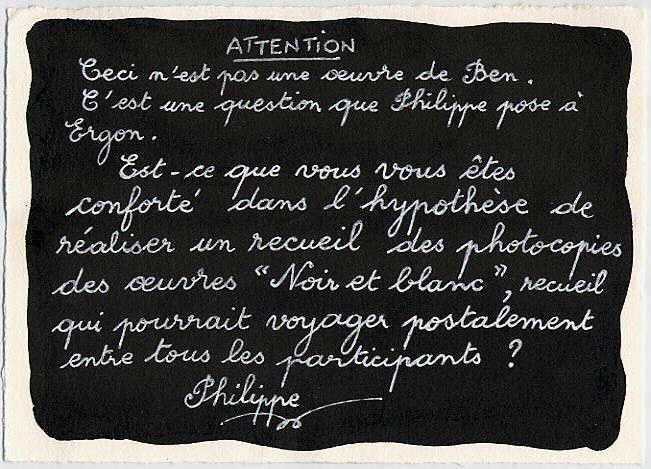 ATTENTION
Ceci n'est pas une œuvre de Ben.
C'est une question que Philippe pose à
Ergon.
Est-ce que vous vous êtes
conforté dans l'hypothèse de
réaliser un recueil des photocopies
des œuvres "Noir et blanc", recueil
qui pourrait voyager postalement
entre tous les participants ?
Philippe